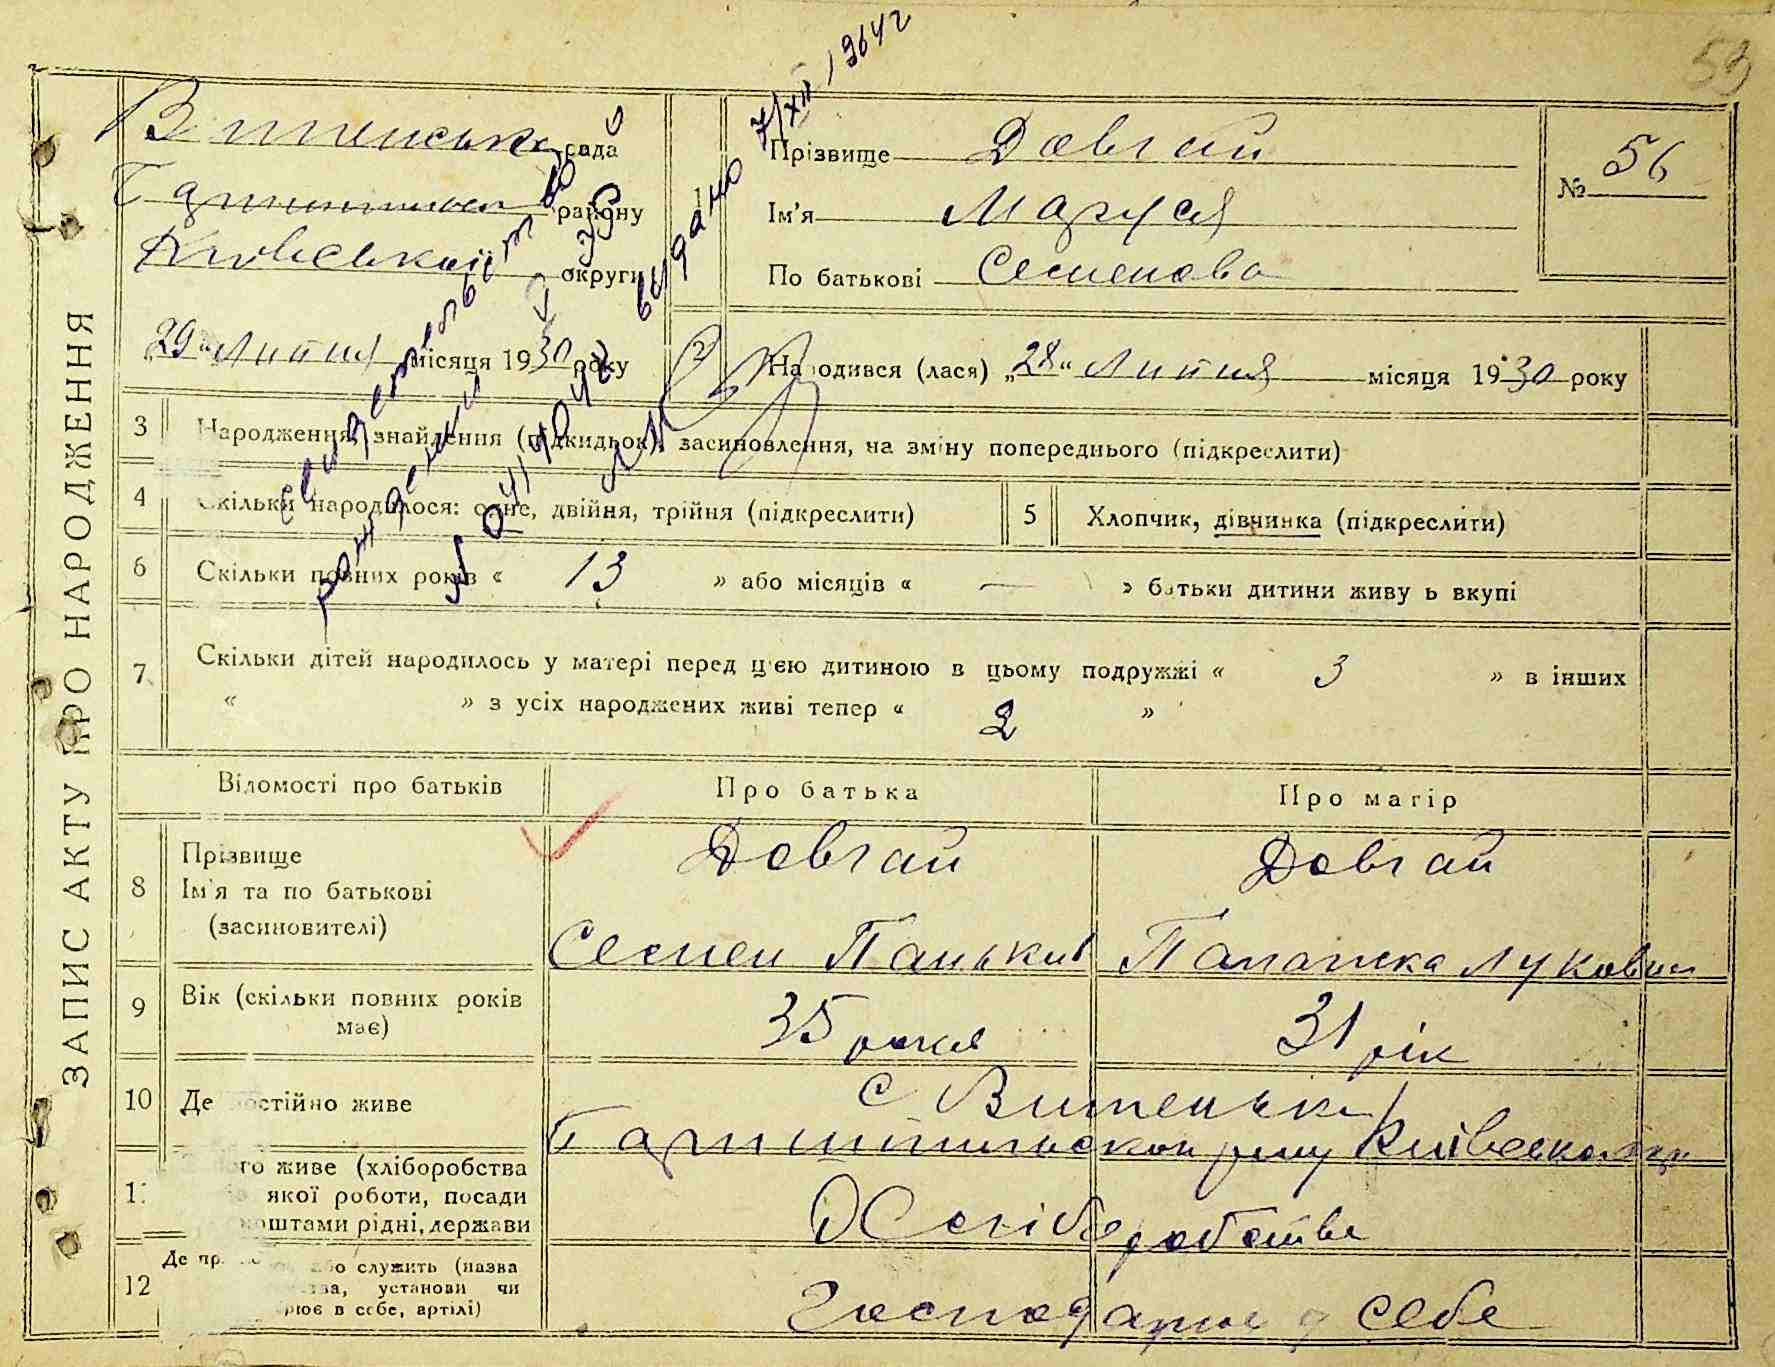 53
Витенська рада
Баришпільськ району
Київської округи
„29“ Липня місяця 1930 року
Прізвище Довгай
Ім'я Маруся
По батькові Семенова
№ 56
Народився (лася) „28“ Липня місяця 1930 року
свидетельство о
рождении
выдано 7/XII 1964 г
ЗАПИС АКТУ ПРО НАРОДЖЕННЯ
3 Народження, знайдення (підкидьок), засиновлення, на зміну попереднього (підкреслити)
4 Скільки народилося: одне, двійня, трійня (підкреслити)
5 Хлопчик, дівчинка (підкреслити)
6 Скільки повних років « 13 » або місяців « — » батьки дитини живуть вкупі
7 Скільки дітей народилось у матері перед цією дитиною в цьому подружжі « 3 » в інших
« » з усіх народжених живі тепер « 2 »
Відомості про батьків
Про батька
Про матір
8 Прізвище
Ім'я та по батькові
(засиновителі)
Довгай
Семен Паньков
Довгай
Палажка Луковна
9 Вік (скільки повних років
має)
35 роки
31 рік
10 Де постійно живе
с Витеньки
Баришпільскои рону Київской окр
11 живе (хліборобства
якої роботи, посади
коштами рідні, держави
Хліборобства
12 Де або служить (назва
установи чи
в себе, артілі)
Господарює у себе